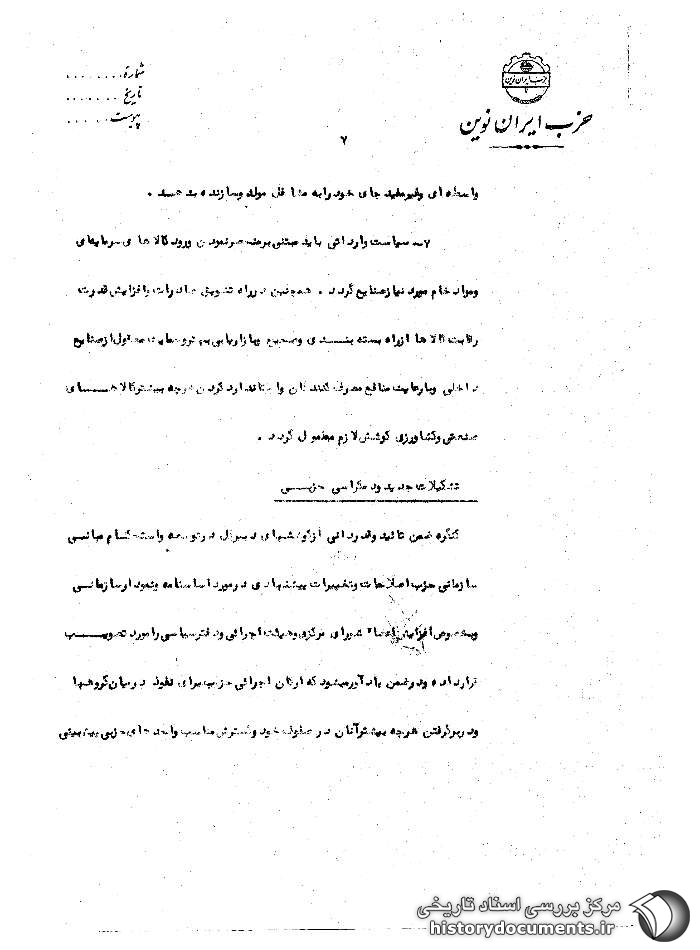 شماره ........
تاریخ .......
پیوست ......
حزب ایران نوین
حزب ایران نوین
۷
واسطه ای وغیرمفید جای خود را به مشاغل مولد وسازنده بدهند .
۷ــ سیاست وارداتی باید مبتنی برمنحصرنمودن ورود کالا های سرمایه‌ای
ومواد خام مورد نیازصنایع گردد . همچنین درراه تشویق صادرات وافزایش قدرت
رقابت کالا ها ازراه بسته بنــدی وصحیح بازاریابی وحمایت معقول ازصنایع
داخلی وبارعایت منافع مصرف کنندگان واستاندارد کردن هرچه بیشترکالا هــای
صنعتی وکشاورزی کوشش لازم معمول گردد .
تشکیلات جدید ودمکراسی حزبــی
کنگره ضمن تائید وقدردانی ازکوششهای دبیرکل درتوسعه واستحکام مبانــی
سازمانی حزب اصلاحات وتغییرات پیشنهادی درمورد اساسنامه ونمودارسازمانــی
وبخصوص افزایش اعضاء شورای مرکزی وهیئت اجرائی ودفترسیاسی را مورد تصویــب
قرارداده ودرضمن یادآورمیشود که ارکان اجرائی حزب برای نفوذ درمیان گروهها
ودربرگرفتن هرچه بیشترآنان در صفوف خود وگسترش مناسب واحد های حزبی پیش بینی
مرکز بررسی اسناد تاریخی
historydocuments.ir